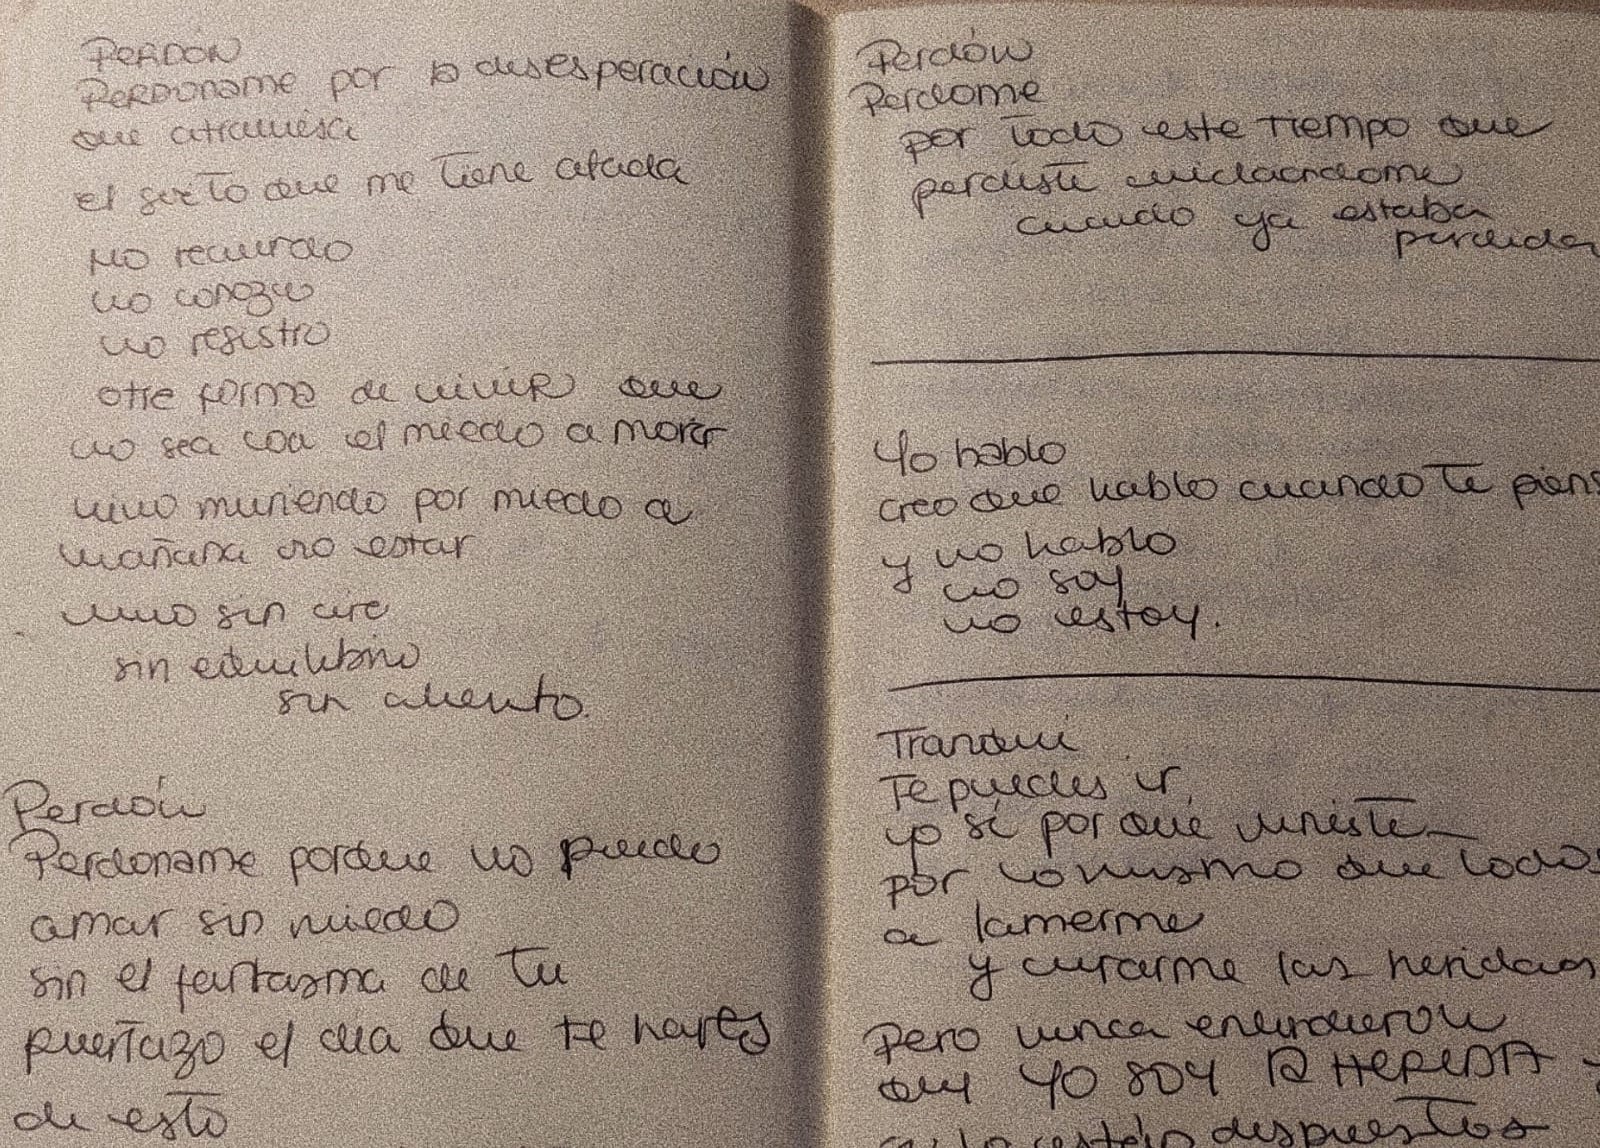 PERDÓN
PERDONAME por la desesperación
que atraviesa
el gesto que me tiene atada
NO recuerdo
no conozco
no registro
otra forma de vivir que
no sea con el miedo a morir
vivo muriendo por miedo a
mañana no estar
vivo sin aire
sin equilibrio
sin aliento.
Perdón
Perdoname porque no puedo
amar sin miedo
sin el fantasma de tu
puertazo el día que te hartes
de esto
Perdón
Perdome
por todo este tiempo que
perdiste cuidandome
cuando ya estaba
perdida
Yo hablo
creo que hablo cuando te piens
y no hablo
no soy
no estoy.
Tranqui
Te puedes ir,
yo sé por que viniste
por lo mismo que todos
a lamerme
y curarme las heridas
Pero nunca entendieron
que YO SOY la HERIDA
despuestos